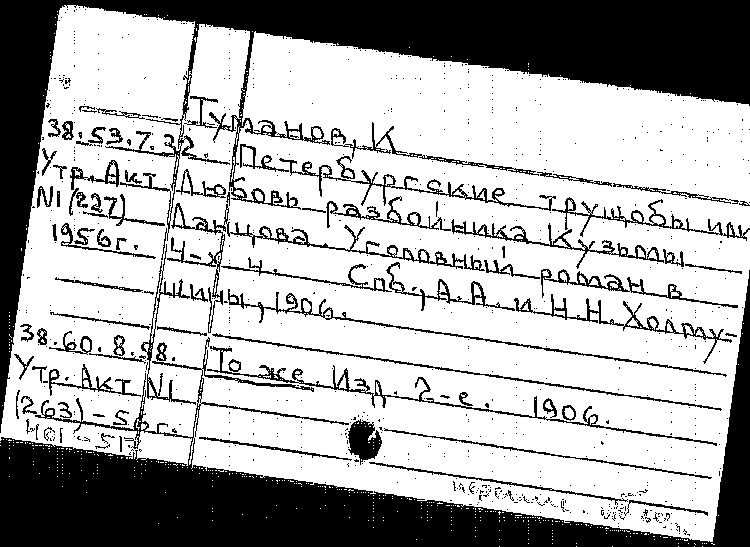 Туманов, К
38.53.7.32. Петербургские трущобы или
Утр. Акт Любовь разбойника Кузьмы
N1 (227) Ланцова. Уголовный роман в
1956г. 4-х ч. Спб., А.А. и Н.Н. Холму-
шины, 1906.
38.60.8.58. То же. Изд. 2-е. 1906.
Утр. Акт N1
(263) - 56г.
401 - 51